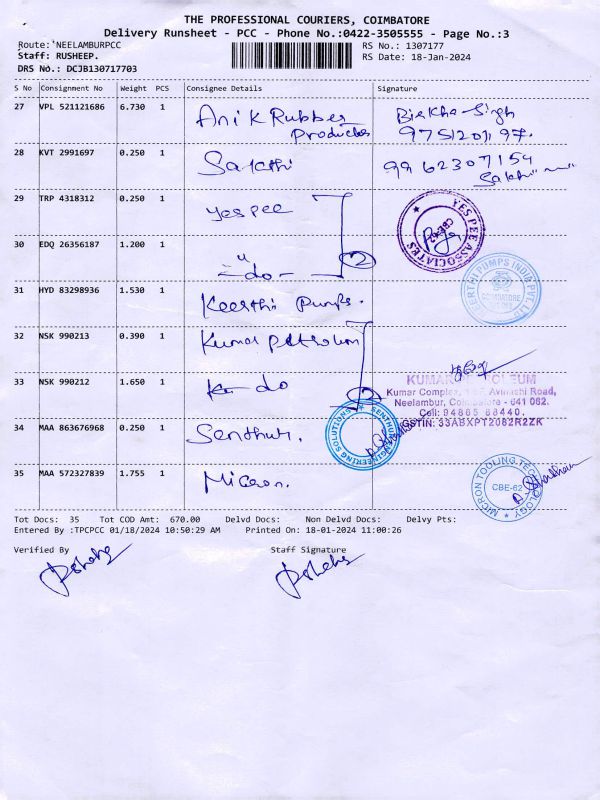 THE PROFESSIONAL COURIERS, COIMBATORE
Delivery Runsheet - PCC - Phone No.:0422-3505555 - Page No.:3
Route:'NEELAMBURPCC
RS No.: 1307177
Staff: RUSHEEP.
RS Date: 18-Jan-2024
DRS No.: DCJB130717703
S No Consignment No Weight PCS Consignee Details Signature
27 VPL 521121686 6.730 1 Anik Rubber Products
9751201197.
28 KVT 2991697 0.250 1 Sakthi 9962307154
Sakthi
29 TRP 4318312 0.250 1 yes pee
YES PEE ASSOCIATES
CBE-62
30 EDQ 26356187 1.200 1 " -do- 2
31 HYD 83298936 1.530 1 Keerthi Pumps.
KEERTHI PUMPS INDIA PVT. LTD
COIMBATORE
32 NSK 990213 0.390 1 Kumar petroleum
33 NSK 990212 1.650 1 do 2
KUMAR PETROLEUM
Kumar Complex, Avinachi Road,
Neelambur, Coimbatore - 641 062.
Cell: 94865 68440.
GSTIN: 33ABXPT2082R2ZK
34 MAA 863676968 0.250 1 Senthur.
SENTHUR ENGINEERING SOLUTIONS
35 MAA 572327839 1.755 1 Micron.
MICRON TOOLING TECHNOLOGY
CBE-62
Tot Docs: 35 Tot COD Amt: 670.00 Delvd Docs: Non Delvd Docs: Delvy Pts:
Entered By :TPCPCC 01/18/2024 10:50:29 AM Printed On: 18-01-2024 11:00:26
Verified By Staff Signature